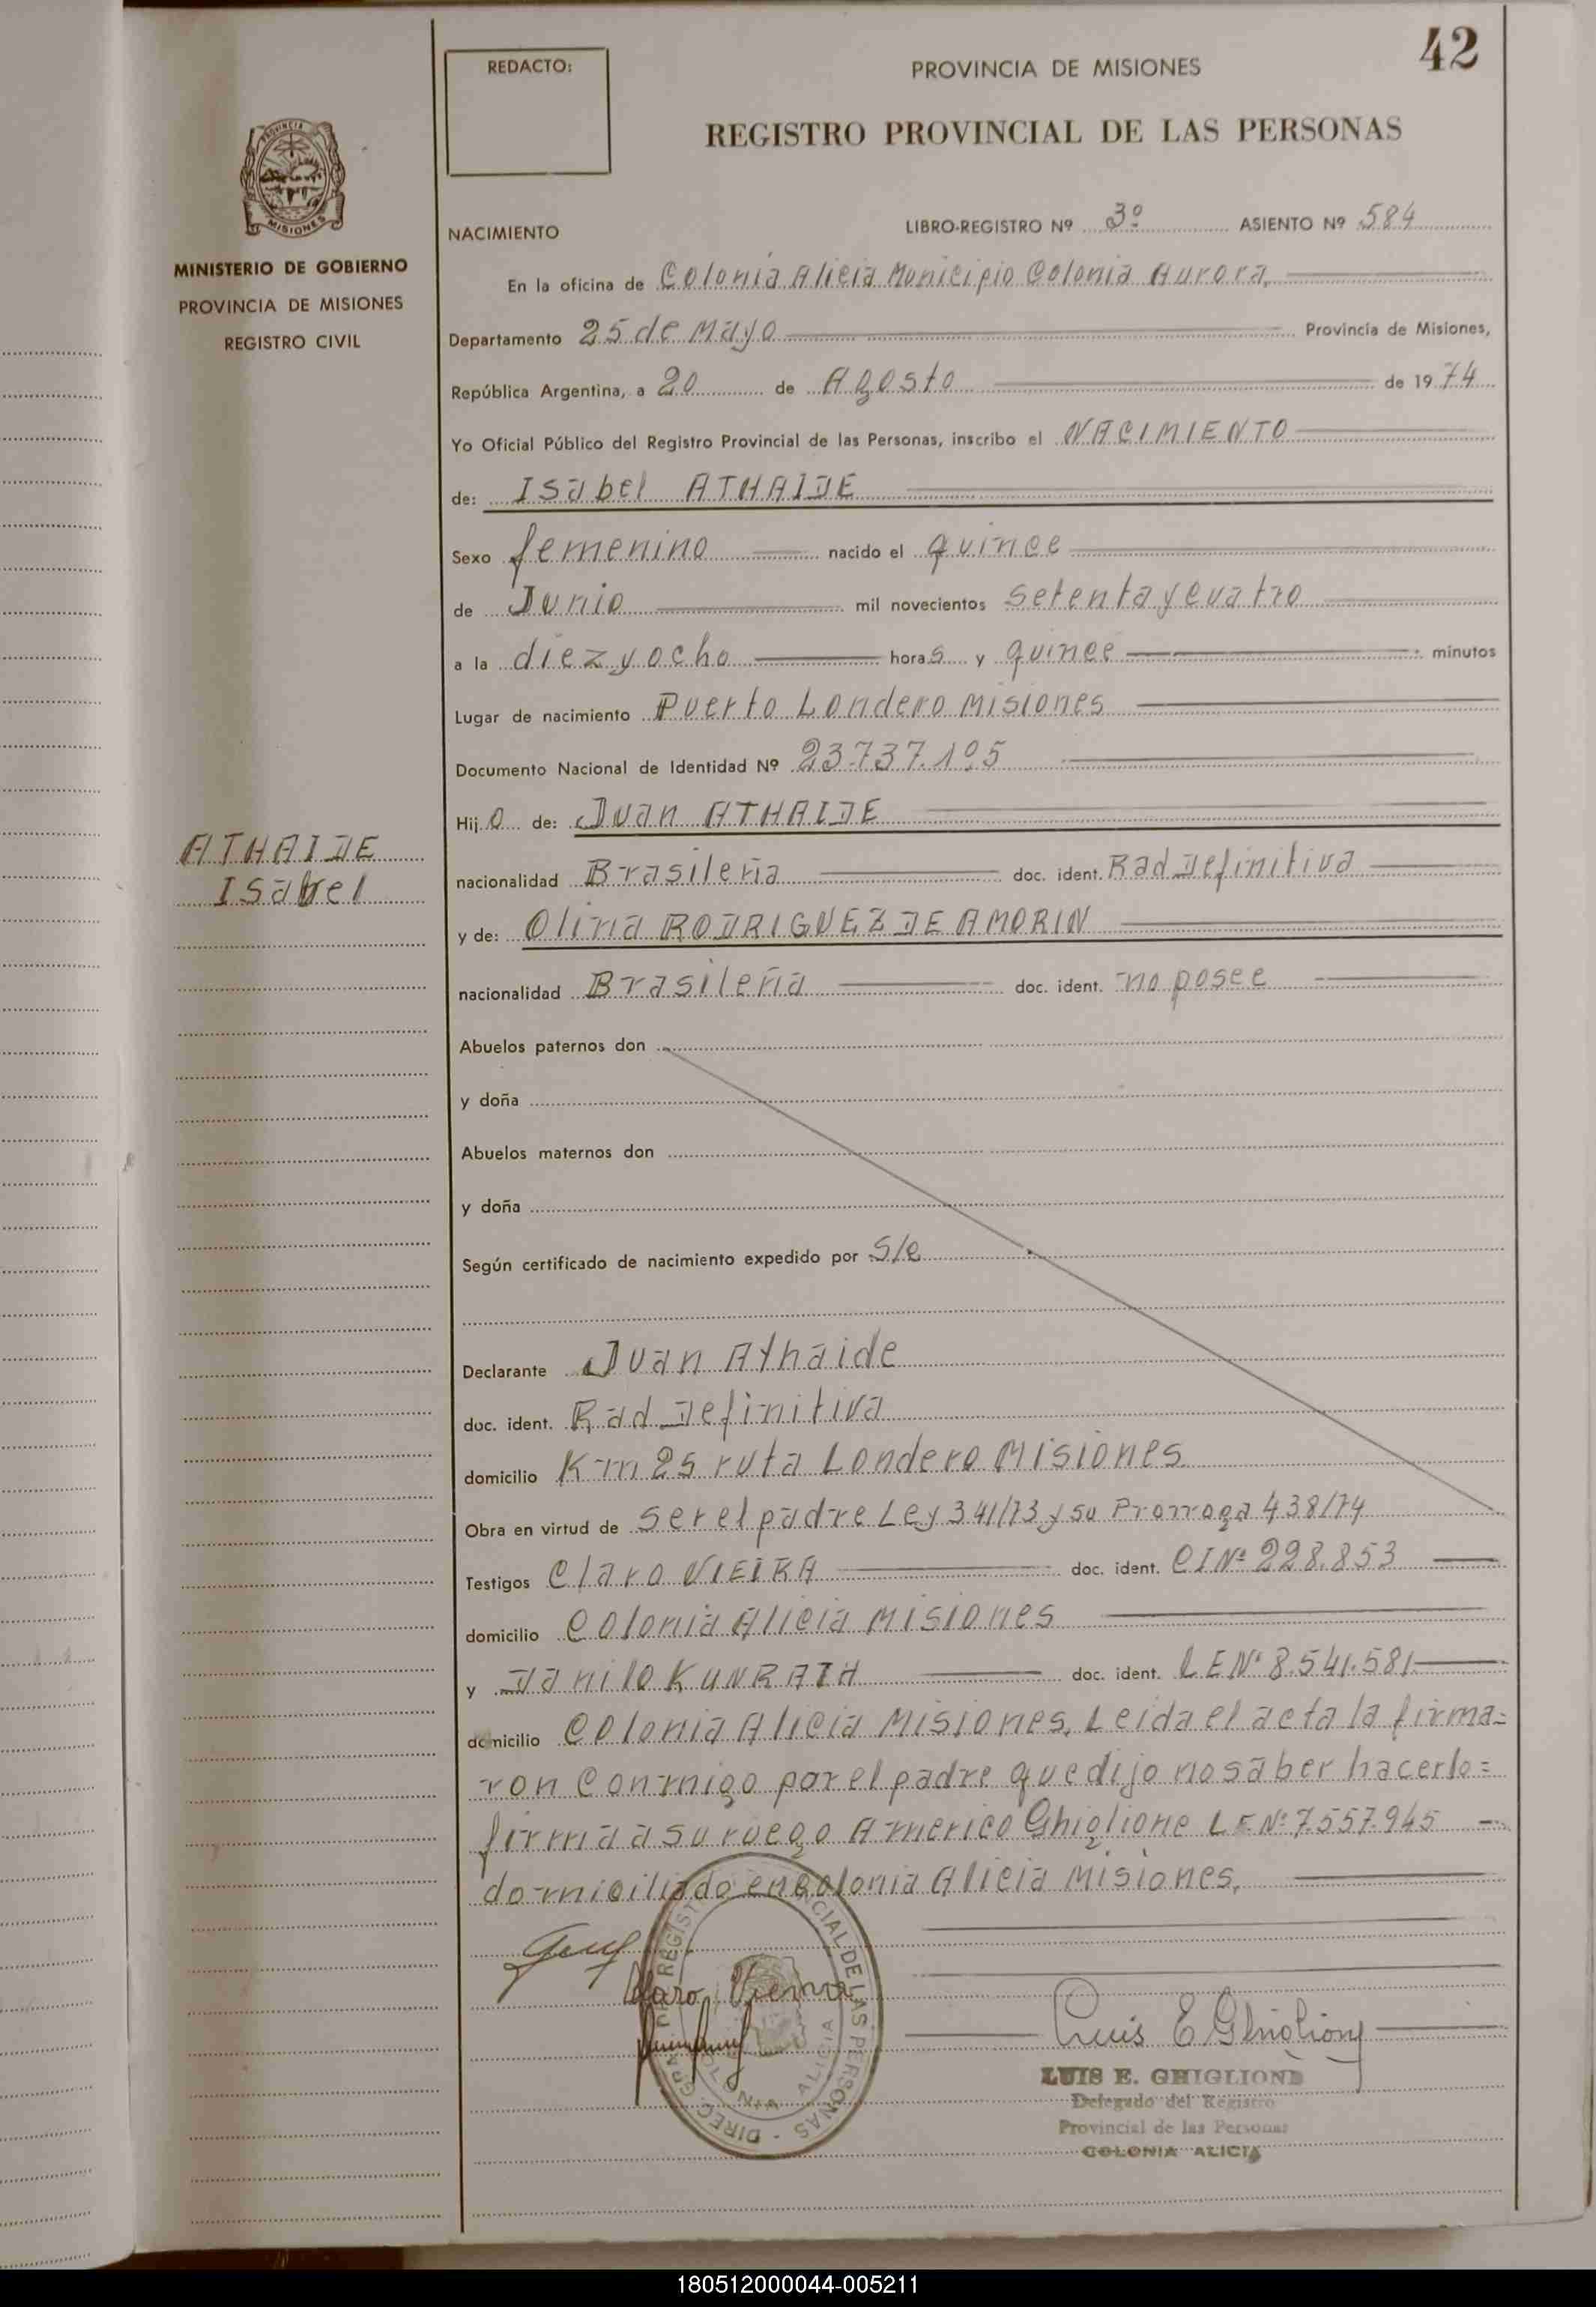 42
REDACTO:
PROVINCIA DE MISIONES
REGISTRO PROVINCIAL DE LAS PERSONAS
PROVINCIA
MISIONES
MINISTERIO DE GOBIERNO
PROVINCIA DE MISIONES
REGISTRO CIVIL
NACIMIENTO
LIBRO-REGISTRO Nº 3º ASIENTO Nº 584
En la oficina de Colonia Alicia Municipio Colonia Aurora,
Departamento 25 de Mayo Provincia de Misiones,
República Argentina, a 20 de Agosto de 1974
Yo Oficial Público del Registro Provincial de las Personas, inscribo el NACIMIENTO
de: Isabel ATHAIDE
Sexo femenino nacido el quince
de Junio mil novecientos setenta y cuatro
a la diez y ocho horas y quince minutos
Lugar de nacimiento Puerto Londero Misiones
Documento Nacional de Identidad Nº 23.737.105
Hijo de: Juan ATHAIDE
ATHAIDE
Isabel
nacionalidad Brasileña doc. ident. Rad Definitiva
y de: Olina RODRIGUEZ DE AMORIN
nacionalidad Brasileña doc. ident. no posee
Abuelos paternos don
y doña
Abuelos maternos don
y doña
Según certificado de nacimiento expedido por S/e
Declarante Juan Athaide
doc. ident. Rad Definitiva
domicilio Km 25 ruta Londero Misiones
Obra en virtud de ser el padre Ley 341/73 y su Prorroga 438/74
Testigos Claro VIEIRA doc. ident. CI Nº 228.853
domicilio Colonia Alicia Misiones
y Danilo KUNRATH doc. ident. LE Nº 8.541.581
domicilio Colonia Alicia Misiones. Leida el acta la firma=
ron conmigo por el padre que dijo no saber hacerlo=
firma a su ruego Americo Ghiglione LE Nº 7.557.945
domiciliado en Colonia Alicia Misiones.
Claro Vieira
Luis E Ghiglione
DIREC. GRAL. DEL REGISTRO PROVINCIAL DE LAS PERSONAS
COLONIA ALICIA
LUIS E. GHIGLIONE
Delegado del Registro
Provincial de las Personas
COLONIA ALICIA
180512000044-005211